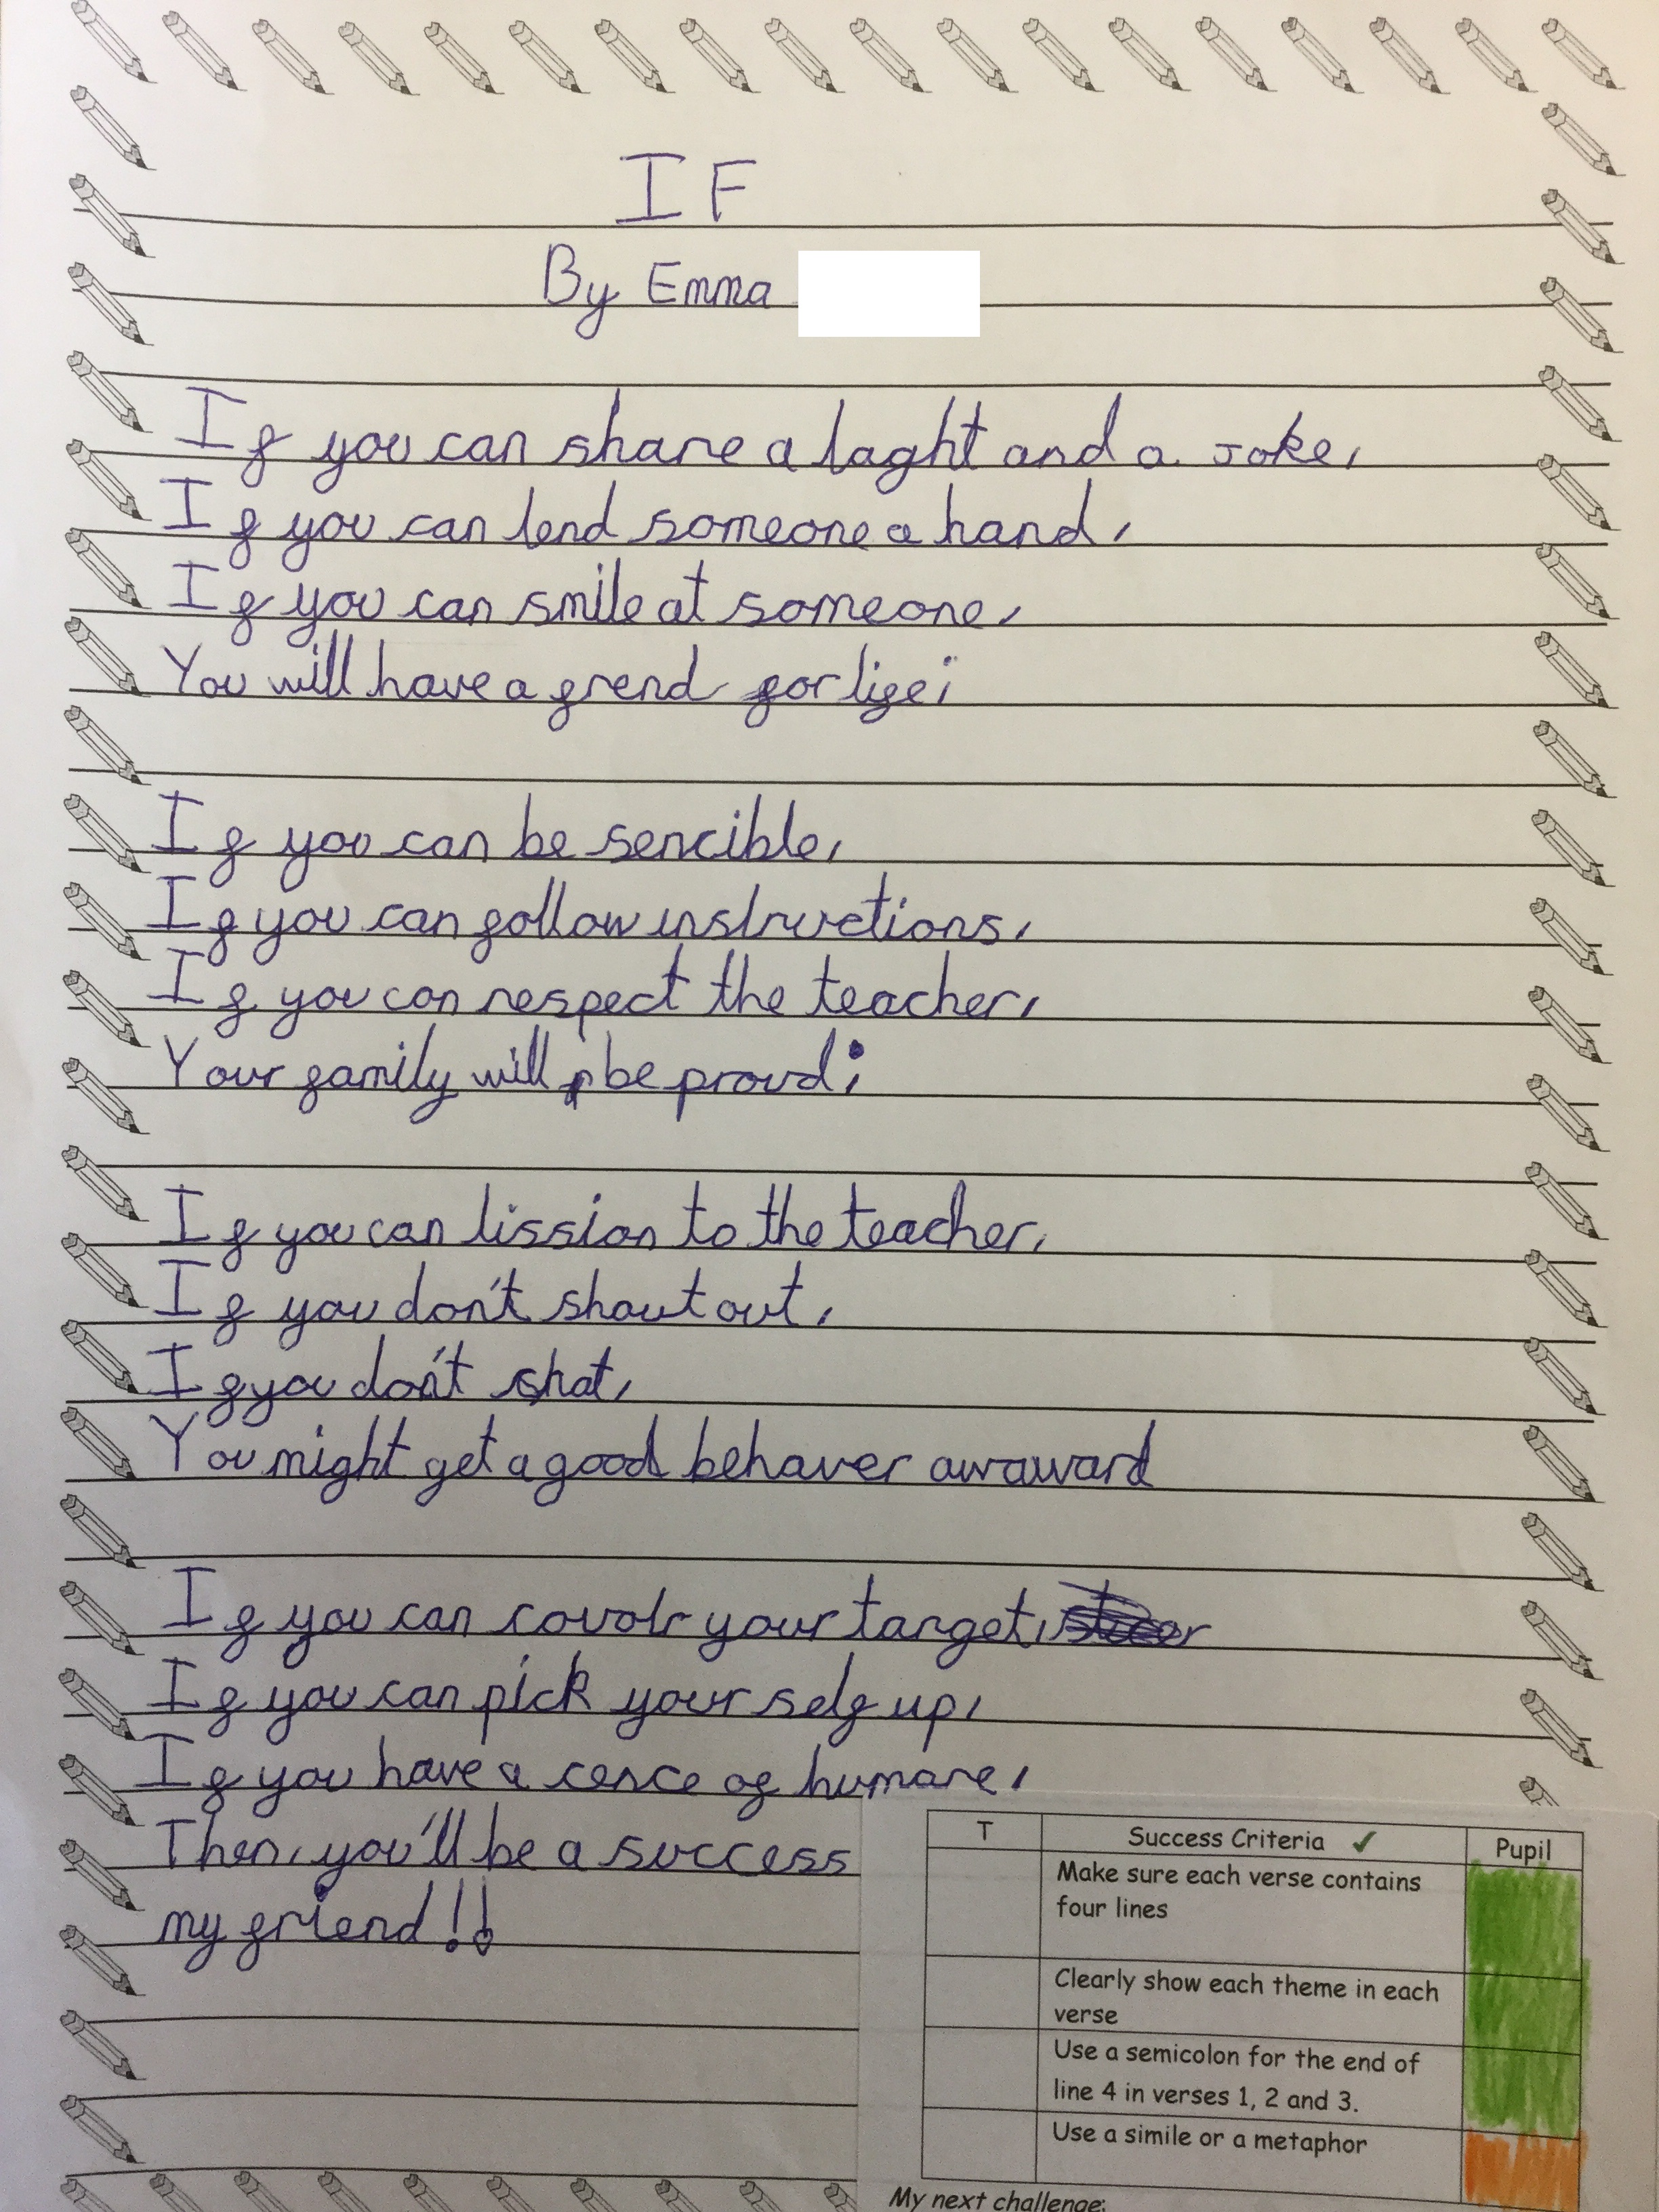 IF
By Emma
If you can share a laght and a joke,
If you can lend someone a hand,
If you can smile at someone,
You will have a frend for life;
If you can be sencible,
If you can follow instructions,
If you can respect the teacher,
Your family will be proud;
If you can lission to the teacher,
If you don't shout out,
If you don't chat,
You might get a good behaver awaward
If you can covolr your target,
If you can pick your self up,
If you have a cence of humare,
Then, you'll be a success
my friend!!
T Success Criteria ✓ Pupil
Make sure each verse contains
four lines
Clearly show each theme in each
verse
Use a semicolon for the end of
line 4 in verses 1, 2 and 3.
Use a simile or a metaphor
My next challenge: